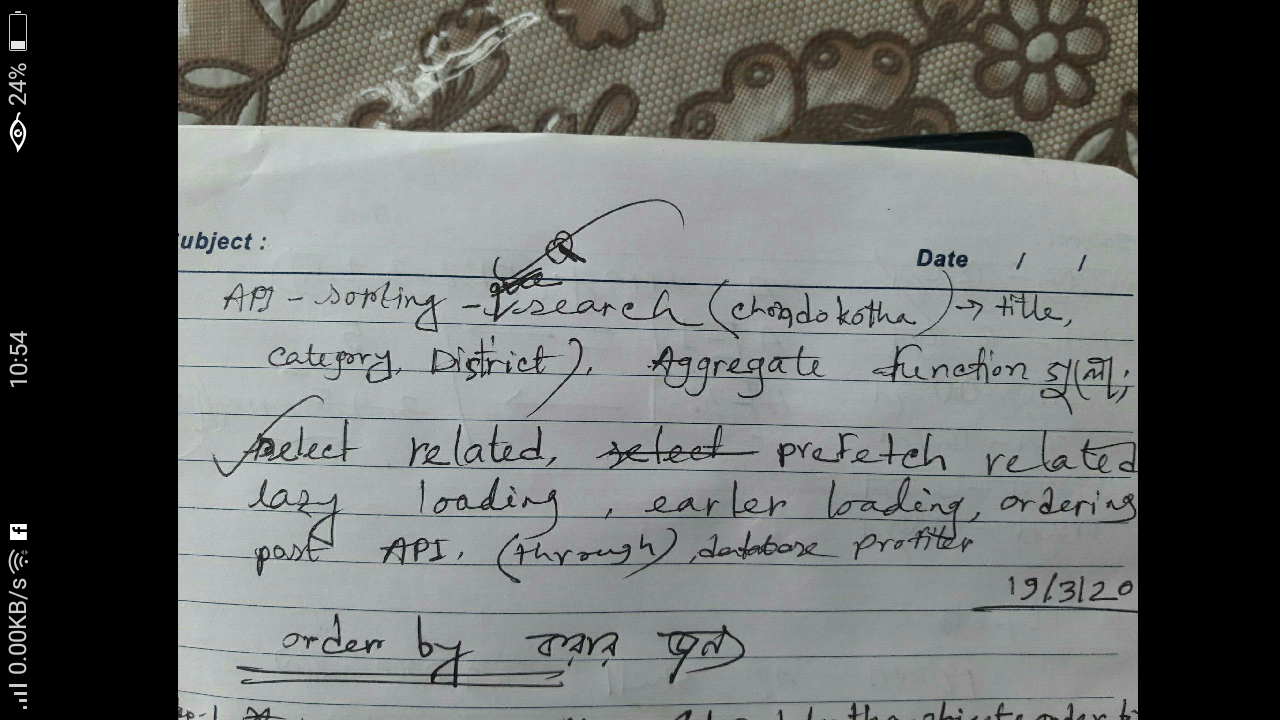 Subject :
Date / /
API - sorting - search (chondokotha) → title,
category, District). Aggregate function গুলো;
select related, select prefetch related
lazy loading, earler loading, ordering
post API. (through), database profiler
19/3/20
order by করার জন্য
24%
10:54
0.00KB/s